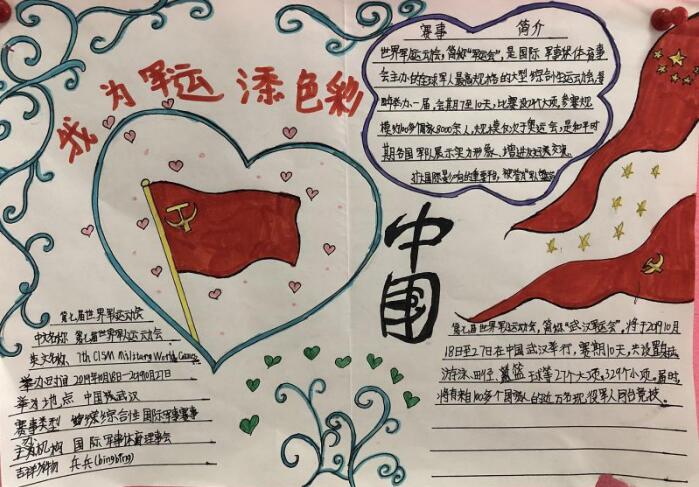 我为军运添色彩
赛事 简介
世界军运动会，简称"军运会"，是国际军事体育理事
会主办的全球军人最高规格的大型综合性运动会，每
四年举办一届，会期7至10天，比赛设27个大项，参赛规
模约100多个国家8000余人，规模仅次于奥运会，是和平时
期各国军队展示实力形象、增进友好交流、
扩大国际影响的重要平台，被誉为
中国
第七届世界军运动会
中文名称：第七届世界军运动会
英文名称：7th CISM Military World Games
举办时间 2019年10月18日-2019年10月27日
举办地点 中国武汉
赛事类型 综合性国际军事赛事
主办机构 国际军事体育理事会
吉祥物 兵兵(bingbing)
第七届世界军运动会，简称"武汉军运会"，将于2019年10月
18日至27日在中国武汉举行，赛期10天，共设置射击
游泳、田径、篮球等27个大项、329个小项。届时，
将有来自100多个国家的近万名现役军人同台竞技。